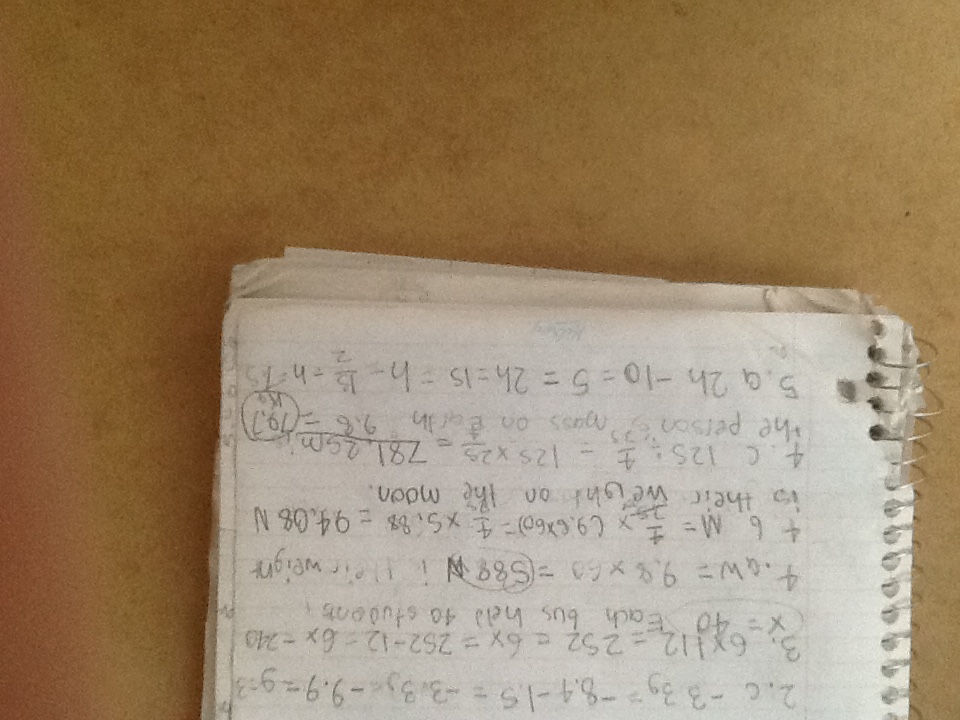 2. c -3.3g = -8.4 - 1.5 = -3.3g = -9.9 = g=3
3. 6x+12 = 252 = 6x = 252-12 = 6x = 240
x = 40 Each bus held 40 students.
4. a W = 9.8 x 60 = 588 N i their weight
4. b M = 4/25 x (9.8x60) = 4/25 x 5.88 = 94.08 N
is their weight on the moon.
4. c 125 ÷ 4/25 = 125 x 25/4 = 781.25m is
the person's mass on Earth 9.8 = 79.7
Kg
5. a 2h - 10 = 5 = 2h = 15 = h = 15/2 = h = 7.5